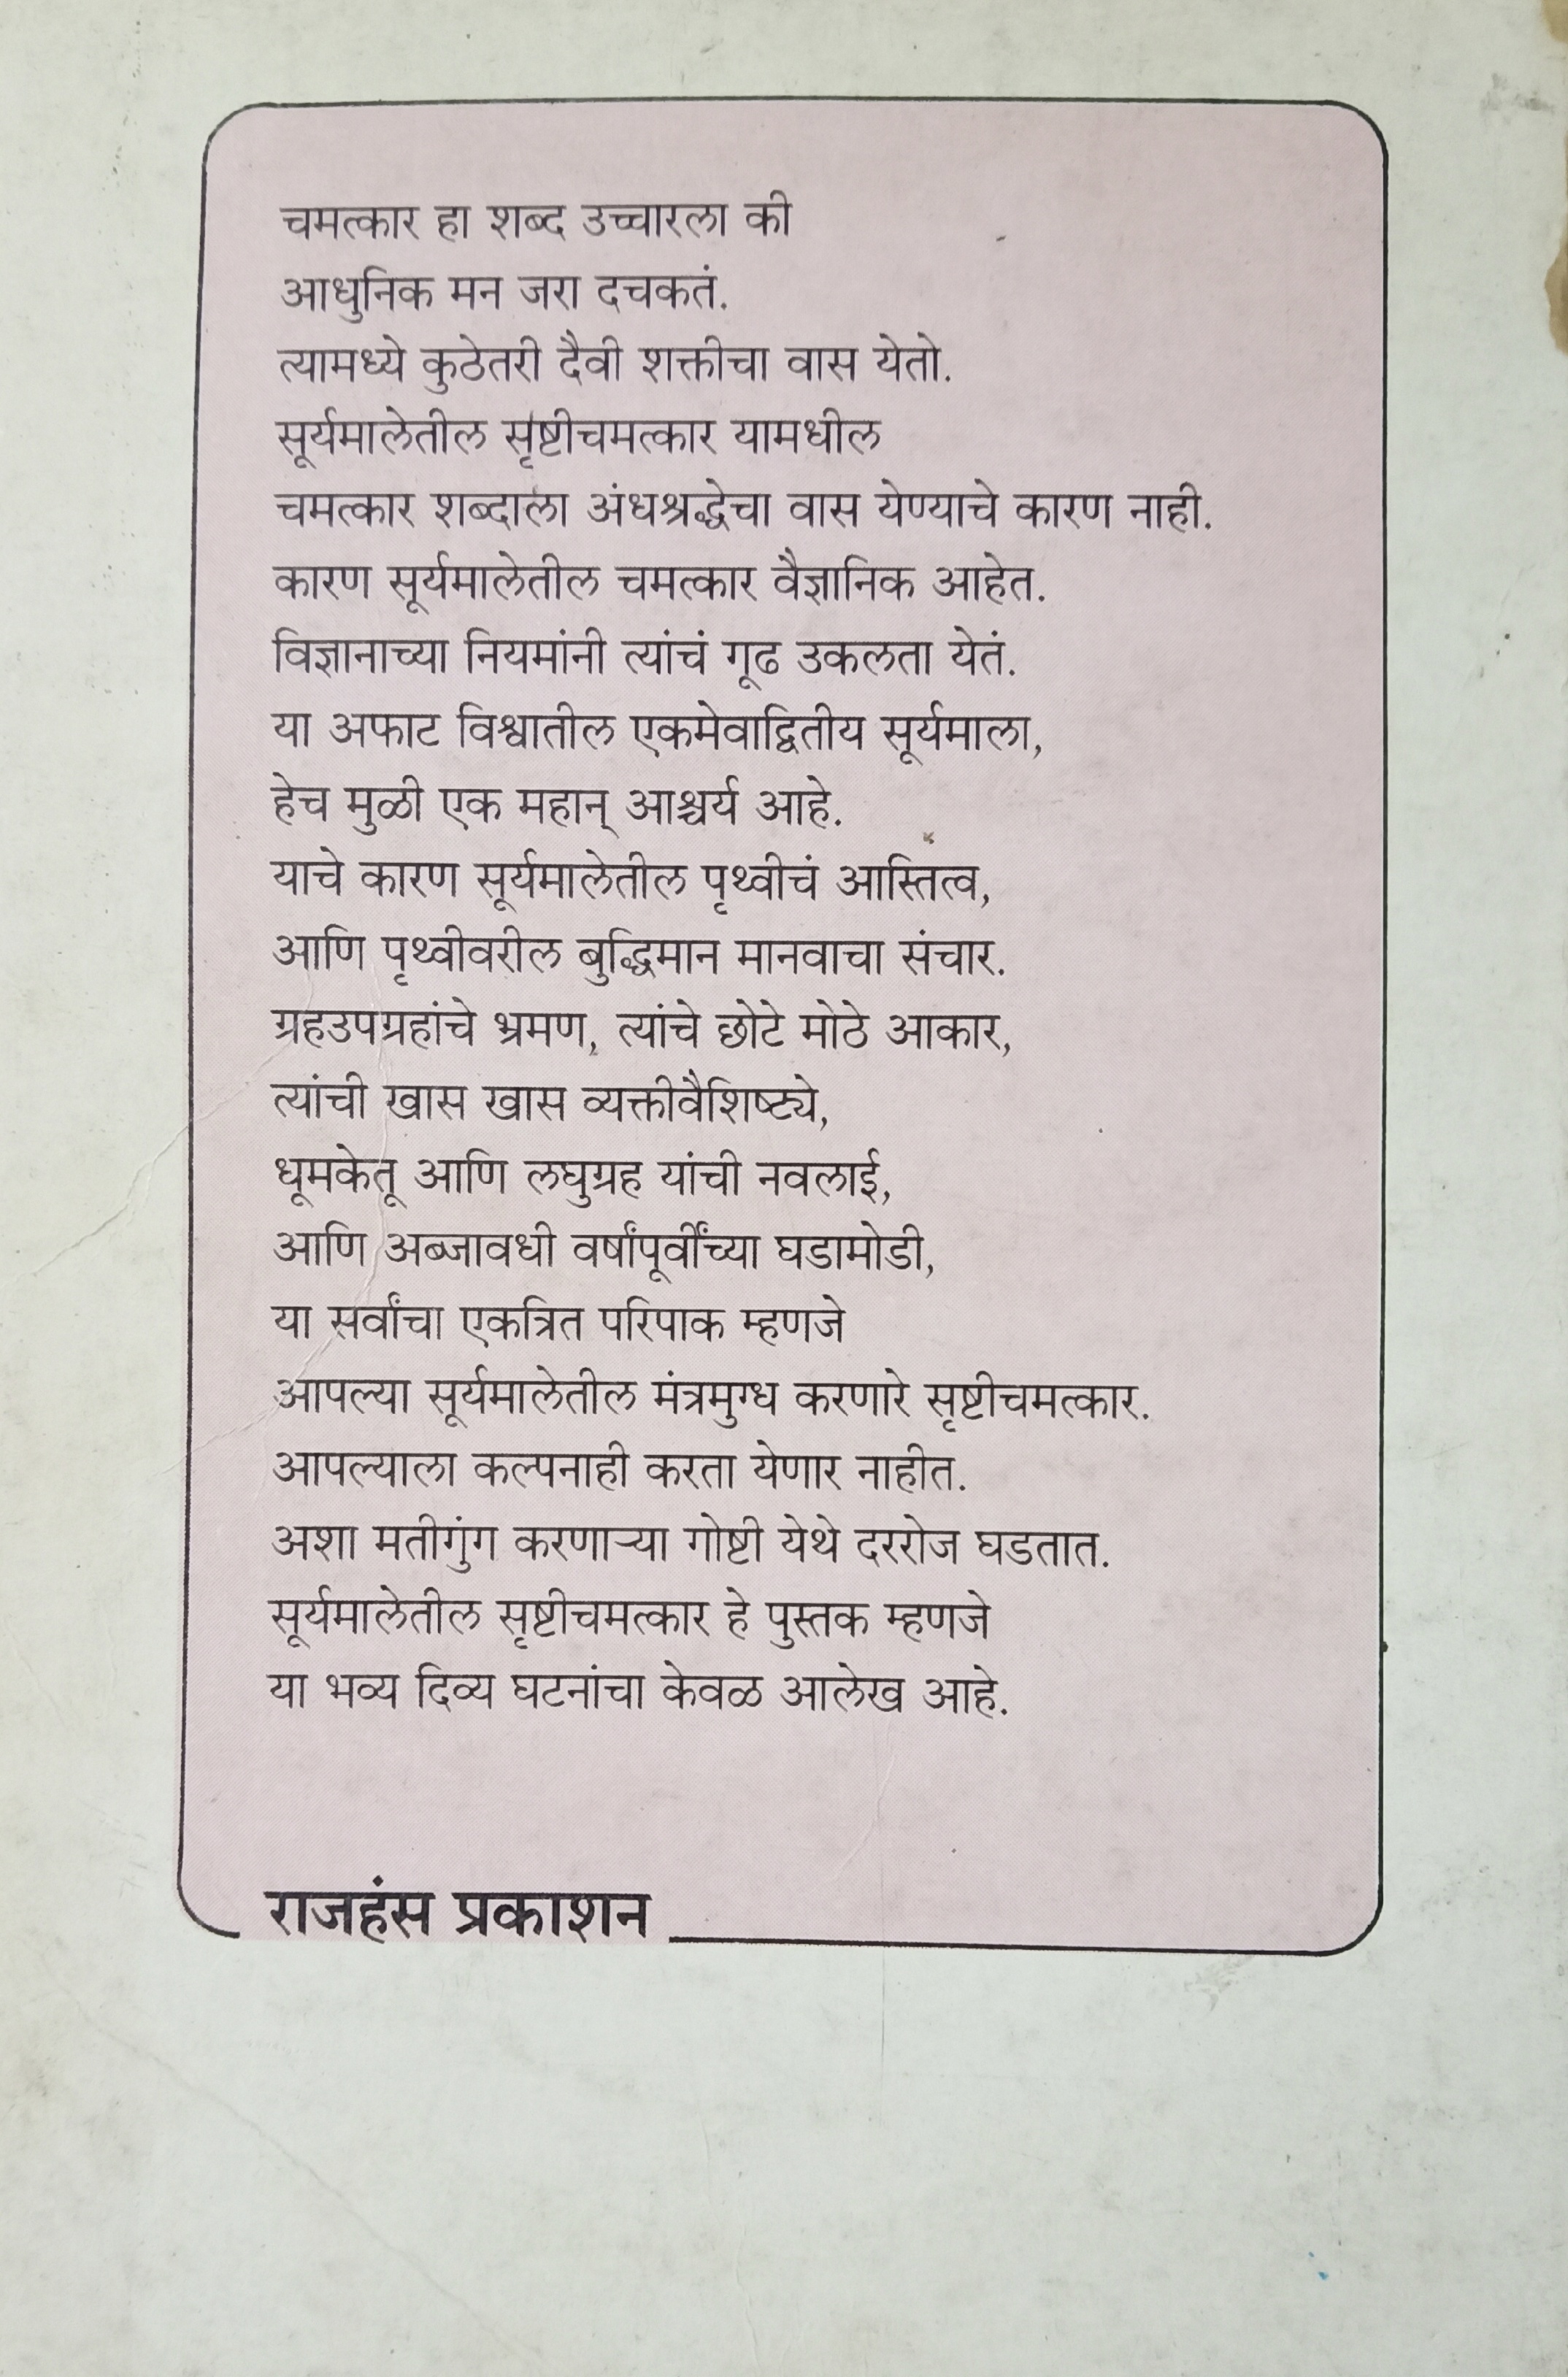 चमत्कार हा शब्द उच्चारला की
आधुनिक मन जरा दचकतं.
त्यामध्ये कुठेतरी दैवी शक्तीचा वास येतो.
सूर्यमालेतील सृष्टीचमत्कार यामधील
चमत्कार शब्दाला अंधश्रद्धेचा वास येण्याचे कारण नाही.
कारण सूर्यमालेतील चमत्कार वैज्ञानिक आहेत.
विज्ञानाच्या नियमांनी त्यांचं गूढ उकलता येतं.
या अफाट विश्वातील एकमेवाद्वितीय सूर्यमाला,
हेच मुळी एक महान् आश्चर्य आहे.
याचे कारण सूर्यमालेतील पृथ्वीचं आस्तित्व,
आणि पृथ्वीवरील बुद्धिमान मानवाचा संचार.
ग्रहउपग्रहांचे भ्रमण, त्यांचे छोटे मोठे आकार,
त्यांची खास खास व्यक्तीवैशिष्ट्ये,
धूमकेतू आणि लघुग्रह यांची नवलाई,
आणि अब्जावधी वर्षांपूर्वींच्या घडामोडी,
या सर्वांचा एकत्रित परिपाक म्हणजे
आपल्या सूर्यमालेतील मंत्रमुग्ध करणारे सृष्टीचमत्कार.
आपल्याला कल्पनाही करता येणार नाहीत.
अशा मतीगुंग करणाऱ्या गोष्टी येथे दररोज घडतात.
सूर्यमालेतील सृष्टीचमत्कार हे पुस्तक म्हणजे
या भव्य दिव्य घटनांचा केवळ आलेख आहे.
राजहंस प्रकाशन